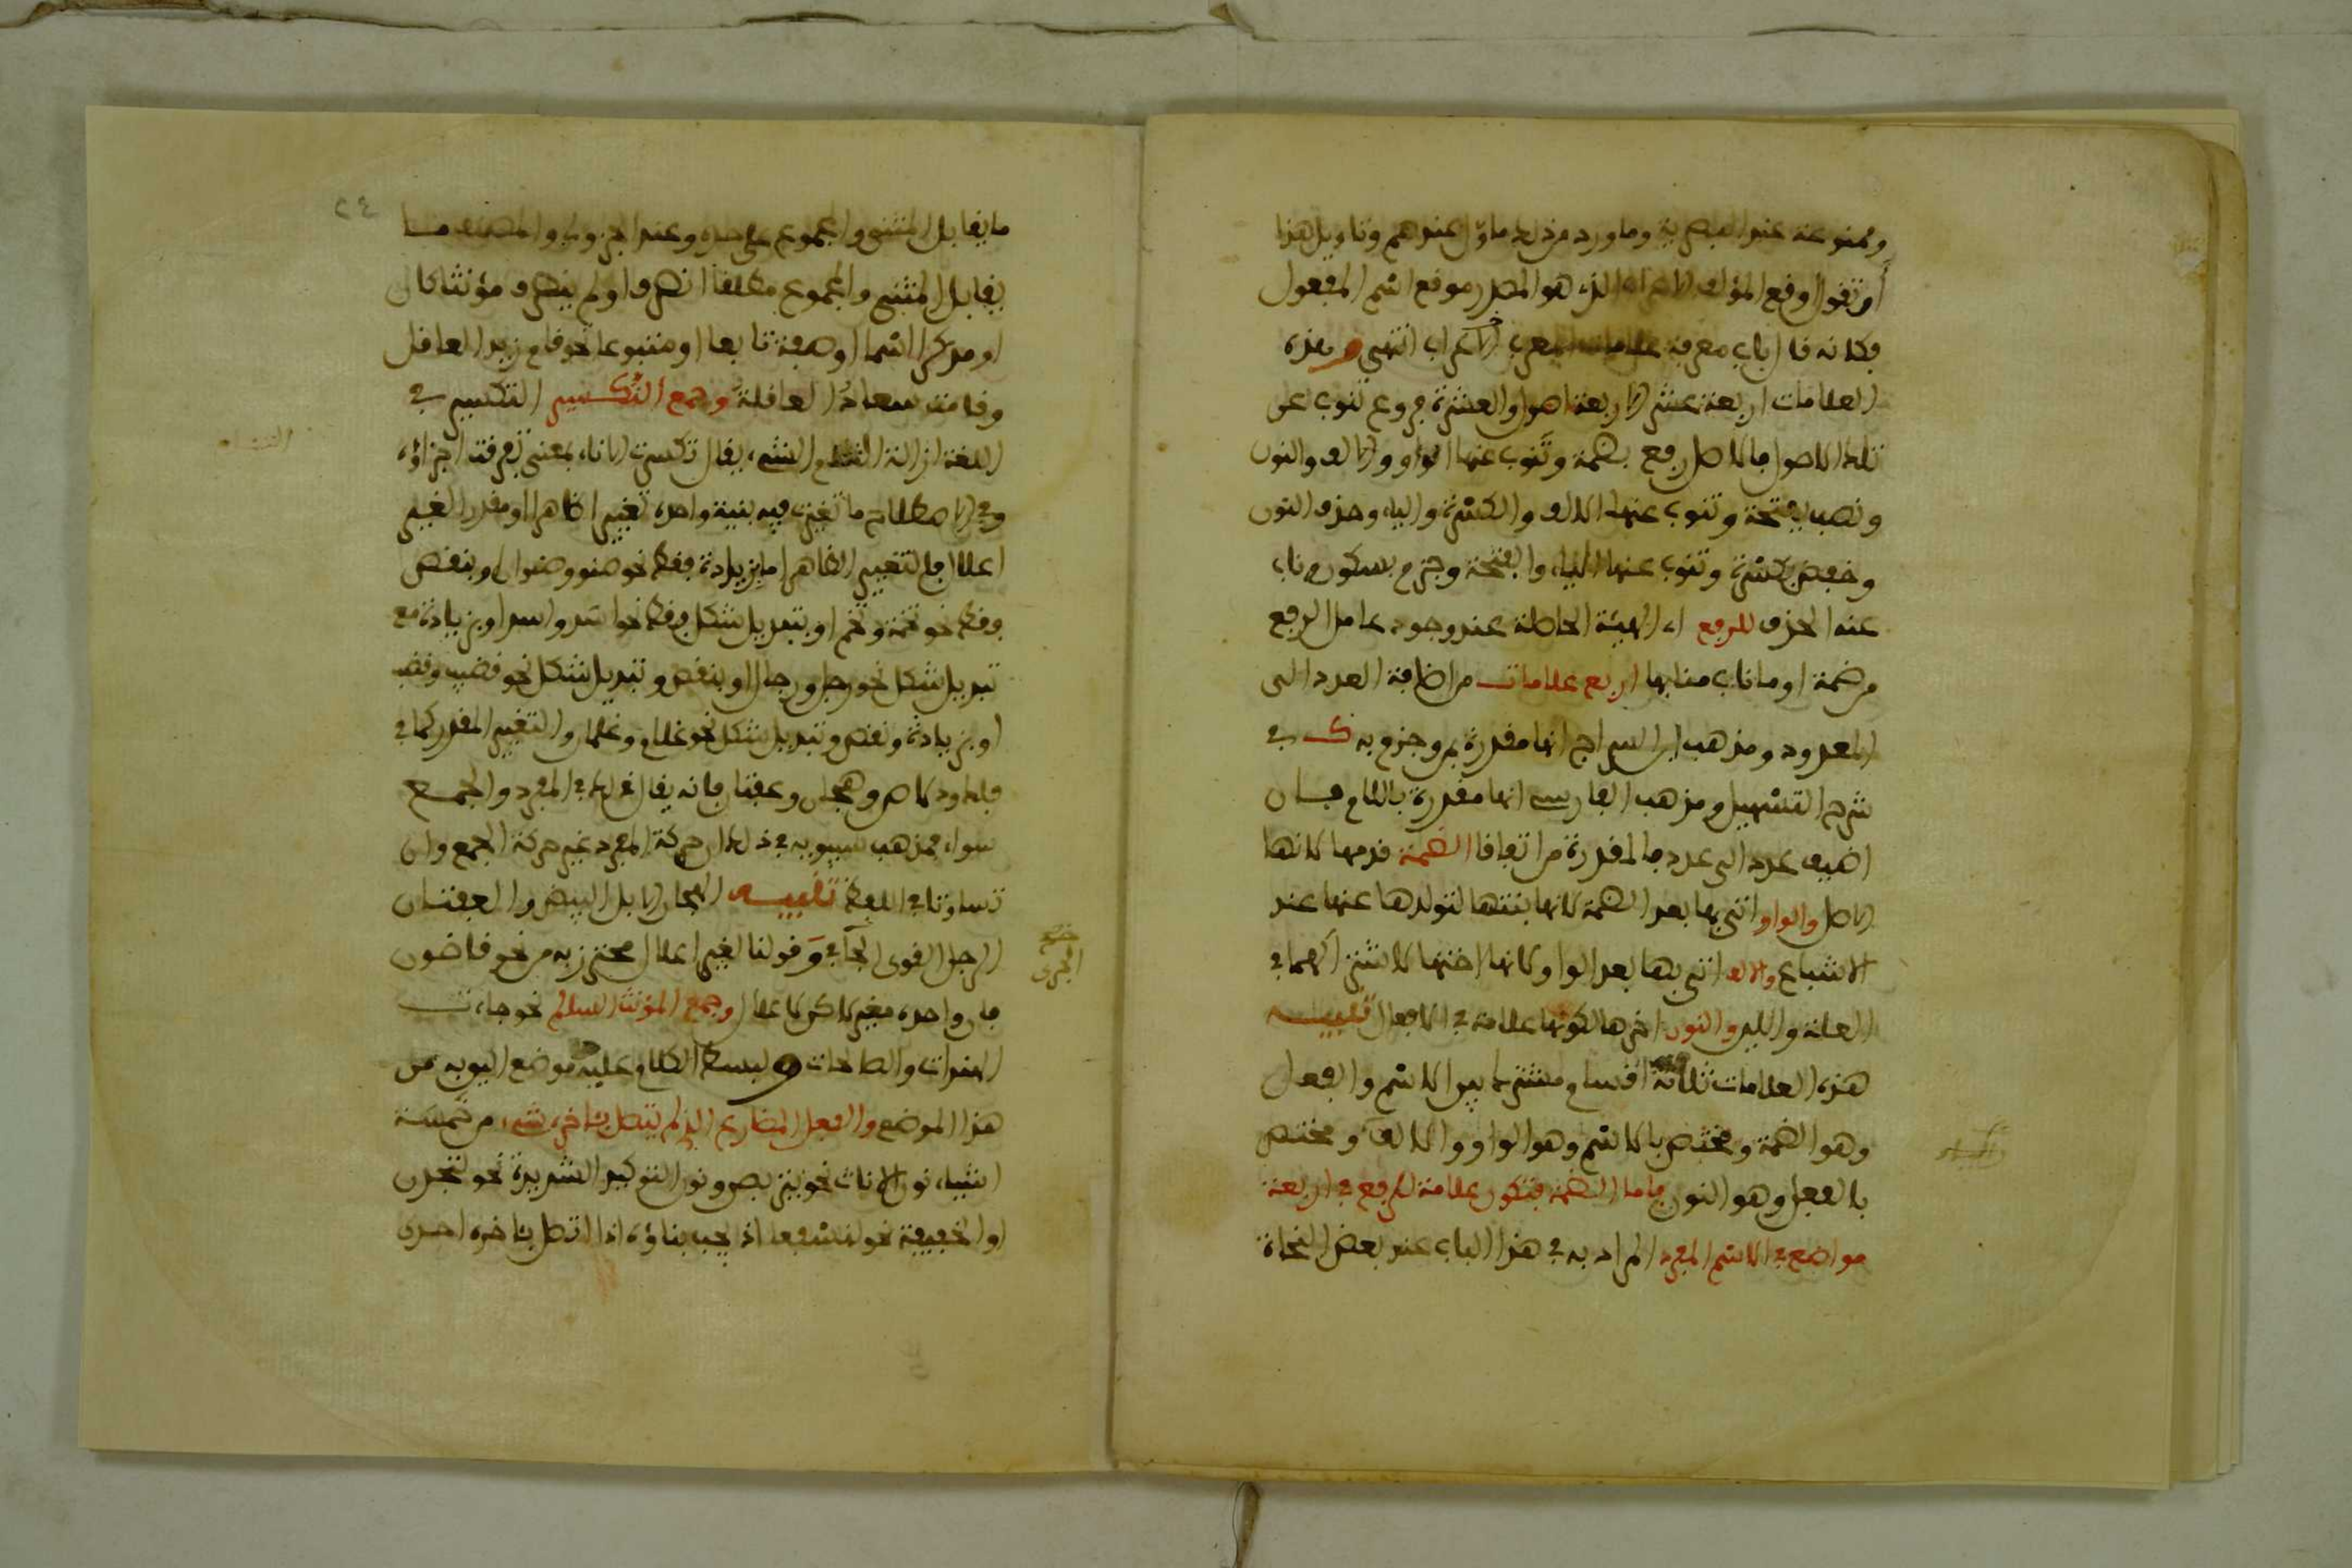 وممنوعة عند البصرية وما ورد من ذلك ماول عندهم وتاويل هذا
ان تقول اوقع المؤلف الاعراب الذي هو المصدر موقع اسم المفعول
فكانه قال باب معرفة علامات المعرب الاعراب انتهى وهذه
العلامات اربعة عشر الاربعة اصول والعشرة فروع تنوب عن
تلك الاصول فالاصل رفع بضمة وتنوب عنها الواو والالف والنون
ونصب بفتحة وتنوب عنها الالف والكسرة والياء وحذف النون
وخفض بكسرة وتنوب عنها الياء والفتحة وجزم بسكون وناب
عنه الحذف للرفع اي الهيئة الحاصلة عند وجود عامل الرفع
من ضمة او ما ناب منابها اربع علامات من اضافة العدد الى
المعدود ومذهب ابن السراج انها مقدرة بمن وجزم به ك في
شرح التسهيل ومذهب الفارسي انها مقدرة باللام فان
اضيف عدد الى عدد فالمقدرة من اتفاقا الضمة قدمها لانها
الاصل والواو اتى بها بعد الضمة لانها بنتها لتولدها عنها عند
الاشباع والالف اتى بها بعد الواو لانها اختها لاشتراكهما في
العلة واللين والنون اخرها لكونها علامة في الافعال تنبيه
هذه العلامات ثلاثة اقسام مشترك بين الاسم والفعل
وهو الضمة ومختص بالاسم وهو الواو والالف ومختص
بالفعل وهو النون فاما الضمة فتكون علامة للرفع في اربعة
مواضع في الاسم المفرد المراد به في هذا الباب عند بعض النحاة
٢٤
ما يقابل المثنى والمجموع على حده وعند الجزولي والمصنف ما
يقابل المثنى والمجموع مطلقا انصرف او لم ينصرف مؤنثا كان
او مذكرا اسما او صفة تابعا او متبوعا نحو قام زيد العاقل
وقامت سعاد العاقلة وجمع التكسير التكسير في
اللغة ازالة التئام الشيء يقال تكسرت الاناء بمعنى تفرقت اجزاؤه
وفي الاصطلاح ما تغيرت فيه بنية واحده تغييرا ظاهرا او مقدرا لغير
اعلال فالتغيير الظاهر اما بزيادة فقط نحو صنو وصنوان او بنقص
فقط نحو تخمة وتخم او بتبديل شكل فقط نحو اسد واسد او بزيادة مع
تبديل شكل نحو رجل ورجال او بنقص وتبديل شكل نحو قضيب وقضب
او بزيادة ونقص وتبديل شكل نحو غلام وغلمان والتغيير المقدر كما في
فلك ودلاص وهجان وعفتان فانه يقال ذلك في المفرد والجمع
سواء فمذهب سيبويه في ذلك ان حركة المفرد غير حركة الجمع وان
تساوتا في اللفظ تنبيه الهجان الابل البيض والعفتان
الرجل القوي الجافي وقولنا لغير اعلال محترز به من نحو قاضون
فان واحده مغير لاكن لاعلال وجمع المؤنث السالم نحو جاءت
الهندات والطلحات وبسط الكلام عليه موضع اليق به من
هذا الموضع والفعل المضارع الذي لم يتصل باخره شيء من خمسة
اشياء نون الاناث نحو يتربصن ونون التوكيد الشديدة نحو لتجدن
او الخفيفة نحو لنسفعا اذ يجب بناؤه اذا اتصل باخره احدى